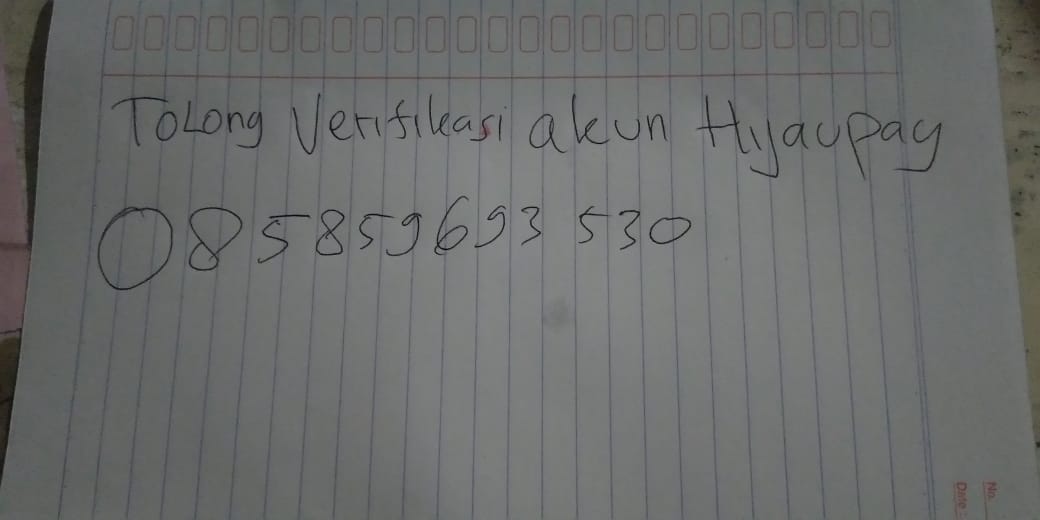 Tolong Verifikasi akun Hijaupay
085859693530
No.
Date :